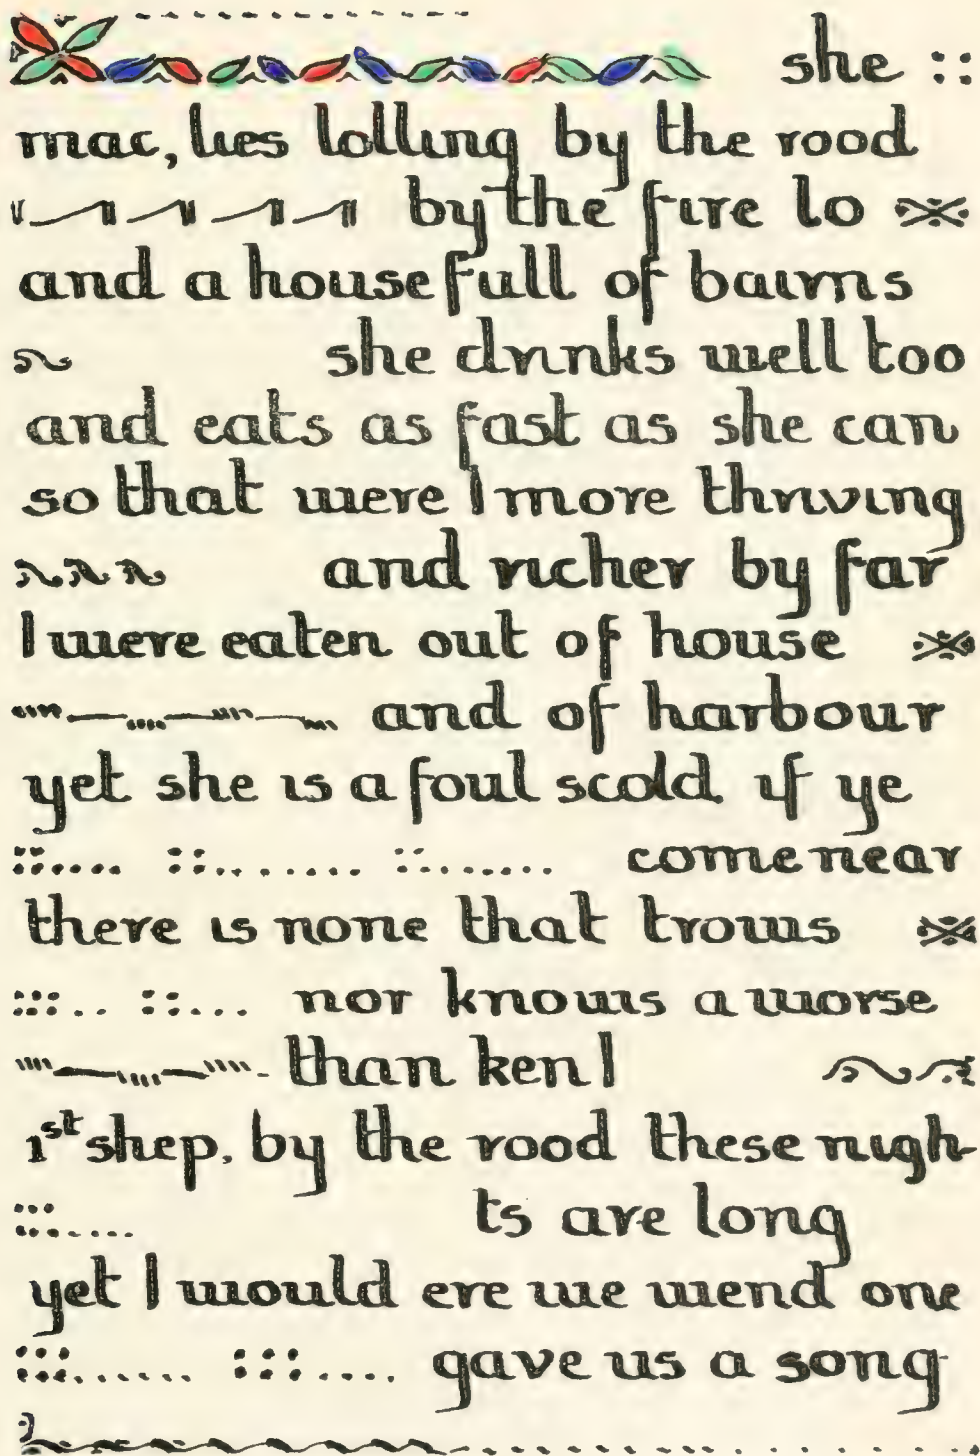 she
mac, lies lolling by the rood
by the fire lo
and a house full of bairns
she drinks well too
and eats as fast as she can
so that were I more thriving
and richer by far
I were eaten out of house
and of harbour
yet she is a foul scold if ye
come near
there is none that trows
nor knows a worse
than ken I
1st shep. by the rood these nigh-
ts are long
yet I would ere we wend one
gave us a song